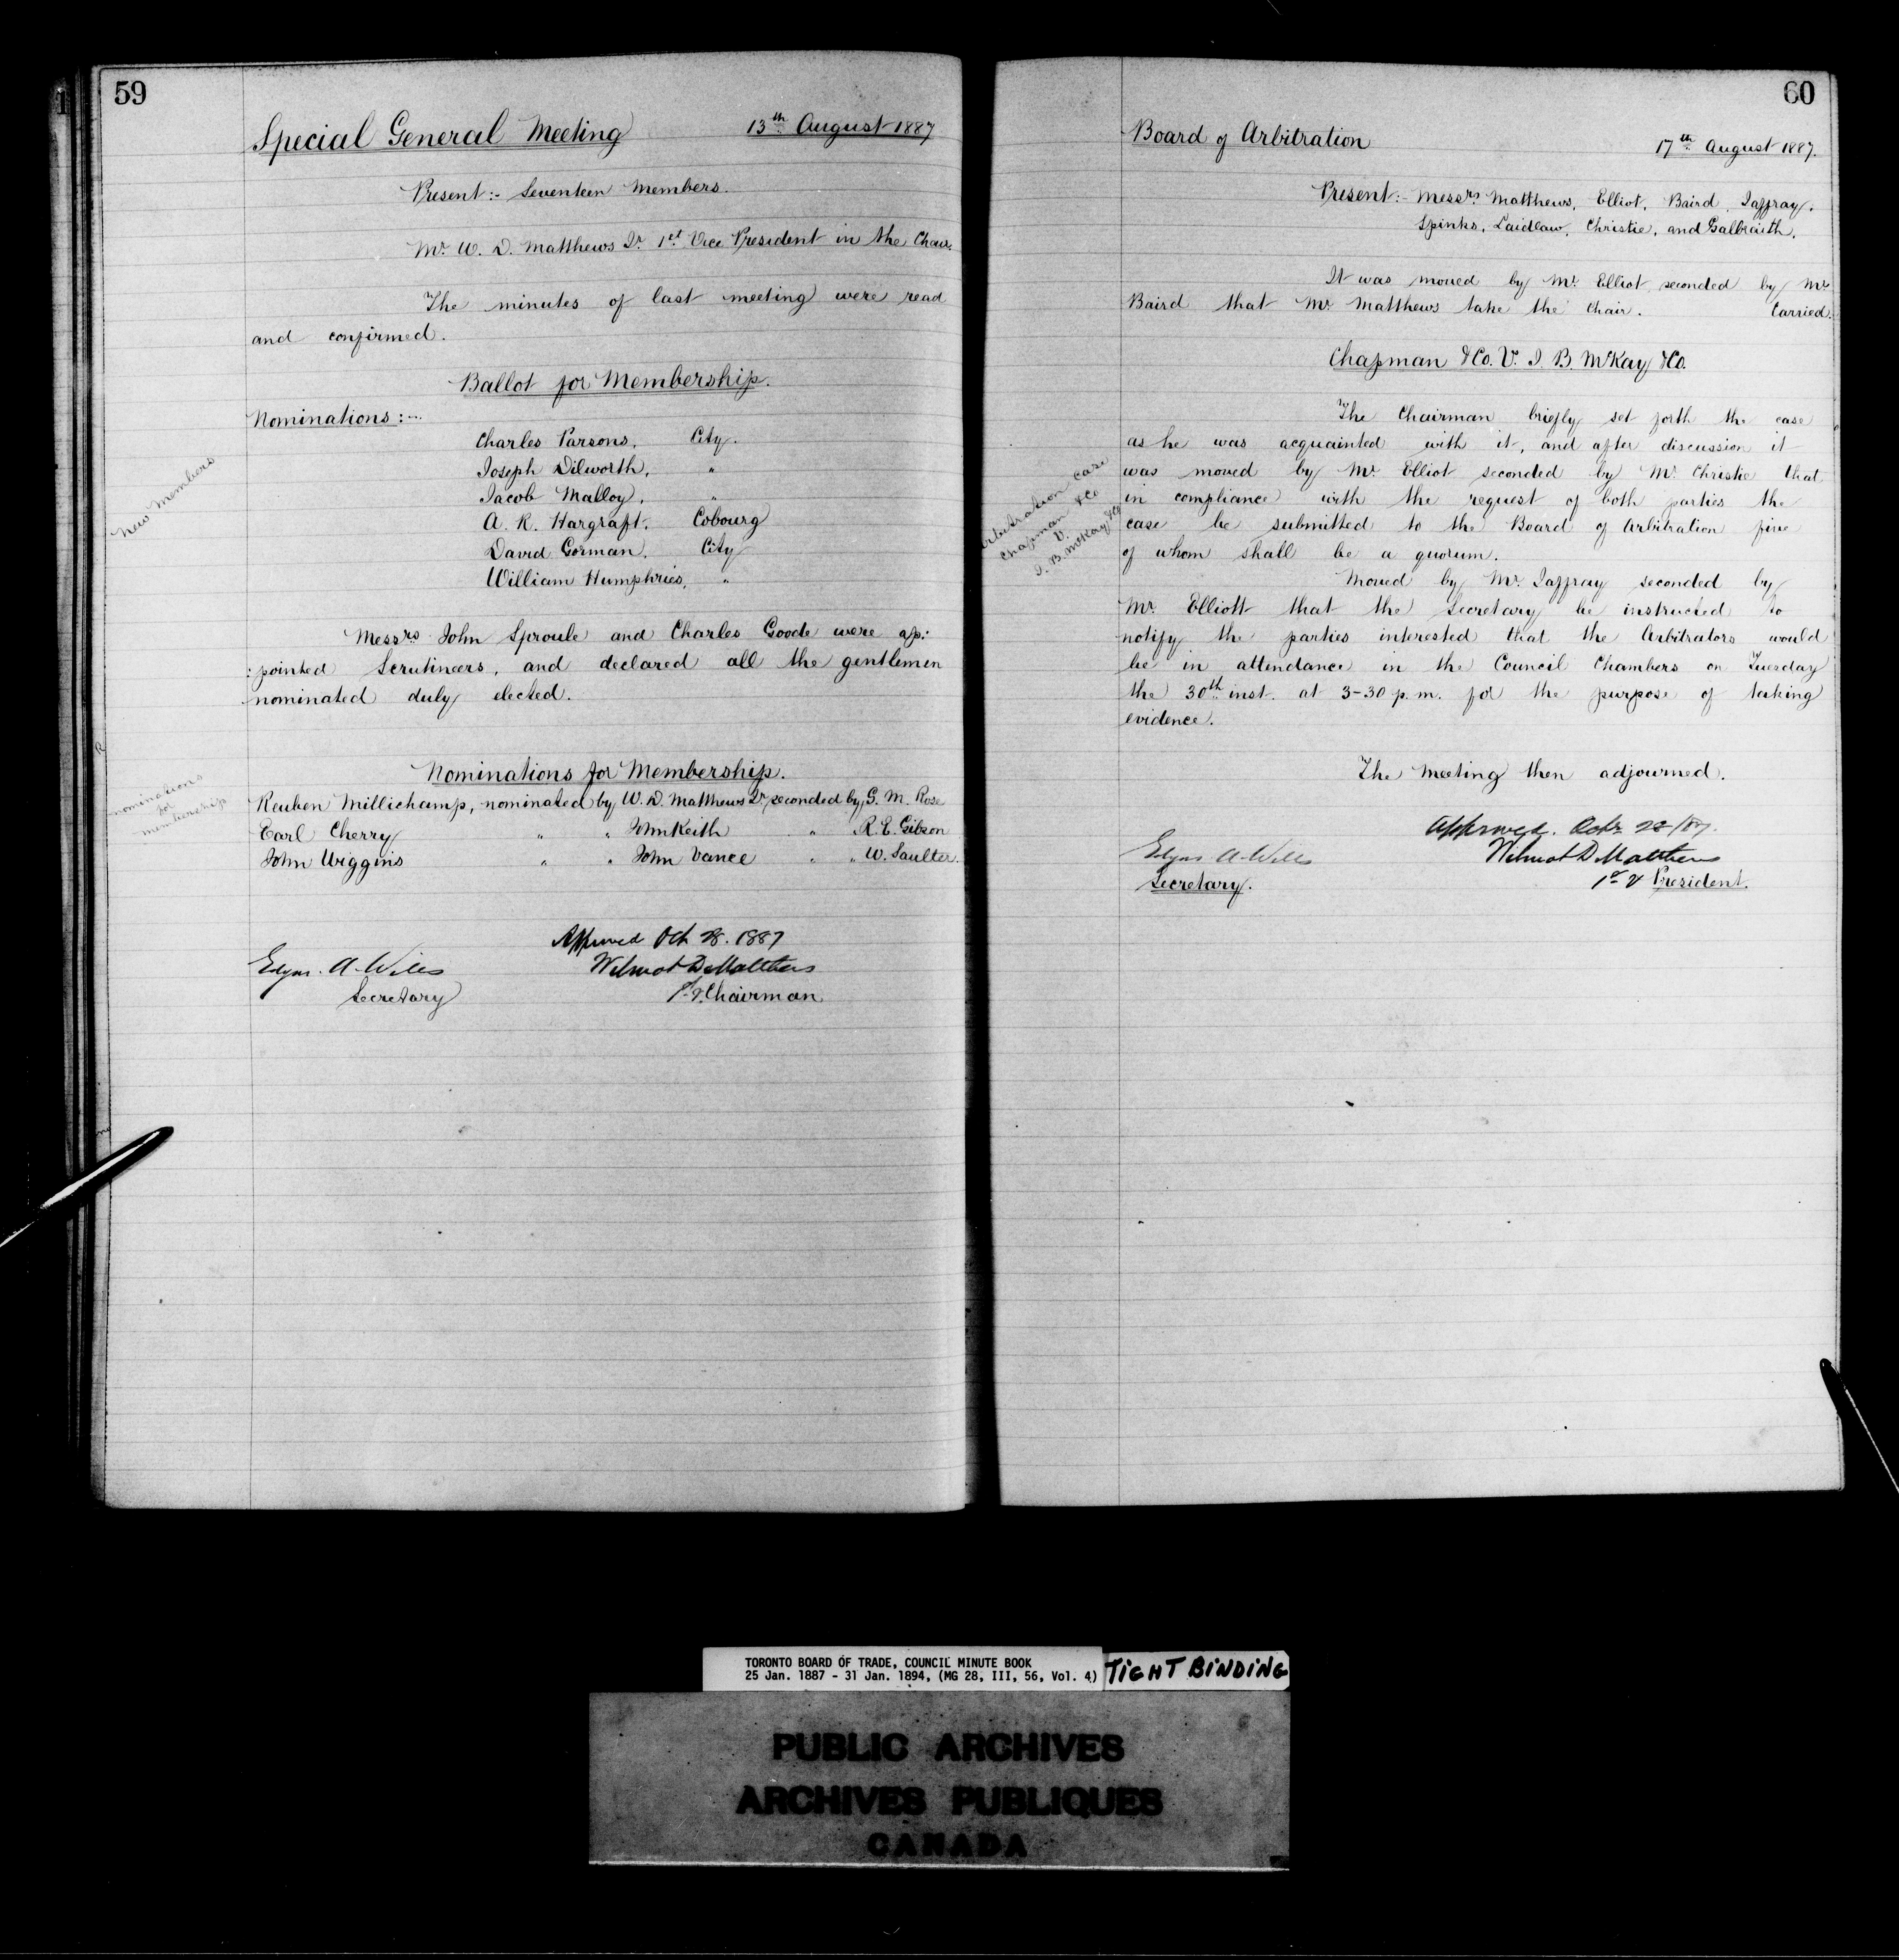 59
Special General Meeting 13th August 1887
Present:- Seventeen Members.
Mr. W. D. Matthews Jr. 1st Vice President in the Chair.
The minutes of last meeting were read
and confirmed.
Ballot for Membership.
Nominations:-
New Members
Charles Parsons, City.
Joseph Dilworth, "
Jacob Malloy, "
A. R. Hargraft, Cobourg
David Gorman, City
William Humphries, "
Messrs John Sproule and Charles Goode were ap:
:pointed Scrutineers, and declared all the gentlemen
nominated duly elected.
Nominations for Membership.
nominations
for
membership
Reuben Millichamp, nominated by W. D. Matthews Jr. seconded by G. M. Rose
Earl Cherry " " John Keith " R. E. Gibson
John Wiggins " " John Vance " " W. Saulter.
Approved Oct 28. 1887
Edgar A. Wills Wilmot D Matthews
Secretary 1st V. Chairman
60
Board of Arbitration 17th August 1887.
Present:- Messrs Matthews, Elliot, Baird, Jaffray,
Spinks, Laidlaw, Christie, and Galbraith.
It was moved by Mr. Elliot seconded by Mr.
Baird that Mr. Matthews take the Chair. Carried.
Chapman & Co. V. I. B. McKay & Co.
Arbitration Case
Chapman & Co
V.
I. B. McKay & Co
The Chairman briefly set forth the case
as he was acquainted with it, and after discussion it
was moved by Mr. Elliot seconded by Mr. Christie that
in compliance with the request of both parties the
case be submitted to the Board of Arbitration five
of whom shall be a quorum.
Moved by Mr. Jaffray seconded by
Mr. Elliott that the Secretary be instructed to
notify the parties interested that the Arbitrators would
be in attendance in the Council Chambers on Tuesday
the 30th inst. at 3-30 p.m. for the purpose of taking
evidence.
The Meeting then adjourned.
Approved. Octr 28/87.
Edgar A. Wills Wilmot D Matthews
Secretary. 1st V President.
TORONTO BOARD OF TRADE, COUNCIL MINUTE BOOK
25 Jan. 1887 - 31 Jan. 1894, (MG 28, III, 56, Vol. 4)
TIGHT BINDING
PUBLIC ARCHIVES
ARCHIVES PUBLIQUES
CANADA